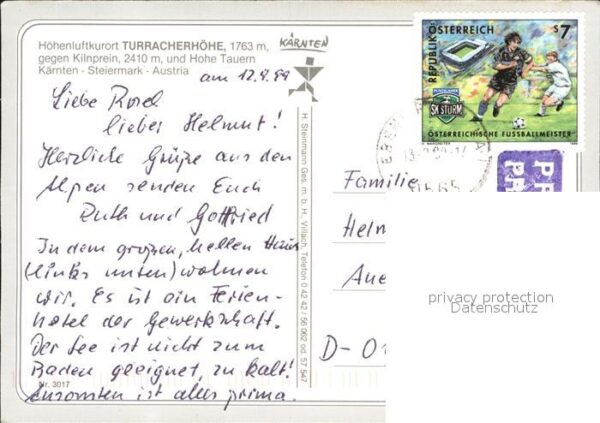 Höhenluftkurort TURRACHERHÖHE, 1763 m,
gegen Kilnprein, 2410 m, und Hohe Tauern
Kärnten - Steiermark - Austria
KÄRNTEN
am 12.9.99
Liebe Rosel
lieber Helmut!
Herzliche Grüße aus den
Alpen senden Euch
Ruth und Gottfried
In dem großen, hellen Haus
(links unten) wohnen
wir. Es ist ein Ferien-
hotel der Gewerkschaft.
Der See ist nicht zum
Baden geeignet, zu kalt!
Ansonsten ist alles prima.
Nr. 3017
H. Steinmann Ges. m. b. H., Villach, Telefon 0 42 42 / 56 062 od. 57 547
REPUBLIK ÖSTERREICH
S 7
SK STURM
ÖSTERREICHISCHE FUSSBALLMEISTER
1999
9565
PR
PA
Familie
Helm
Aue
D-0
privacy protection
Datenschutz